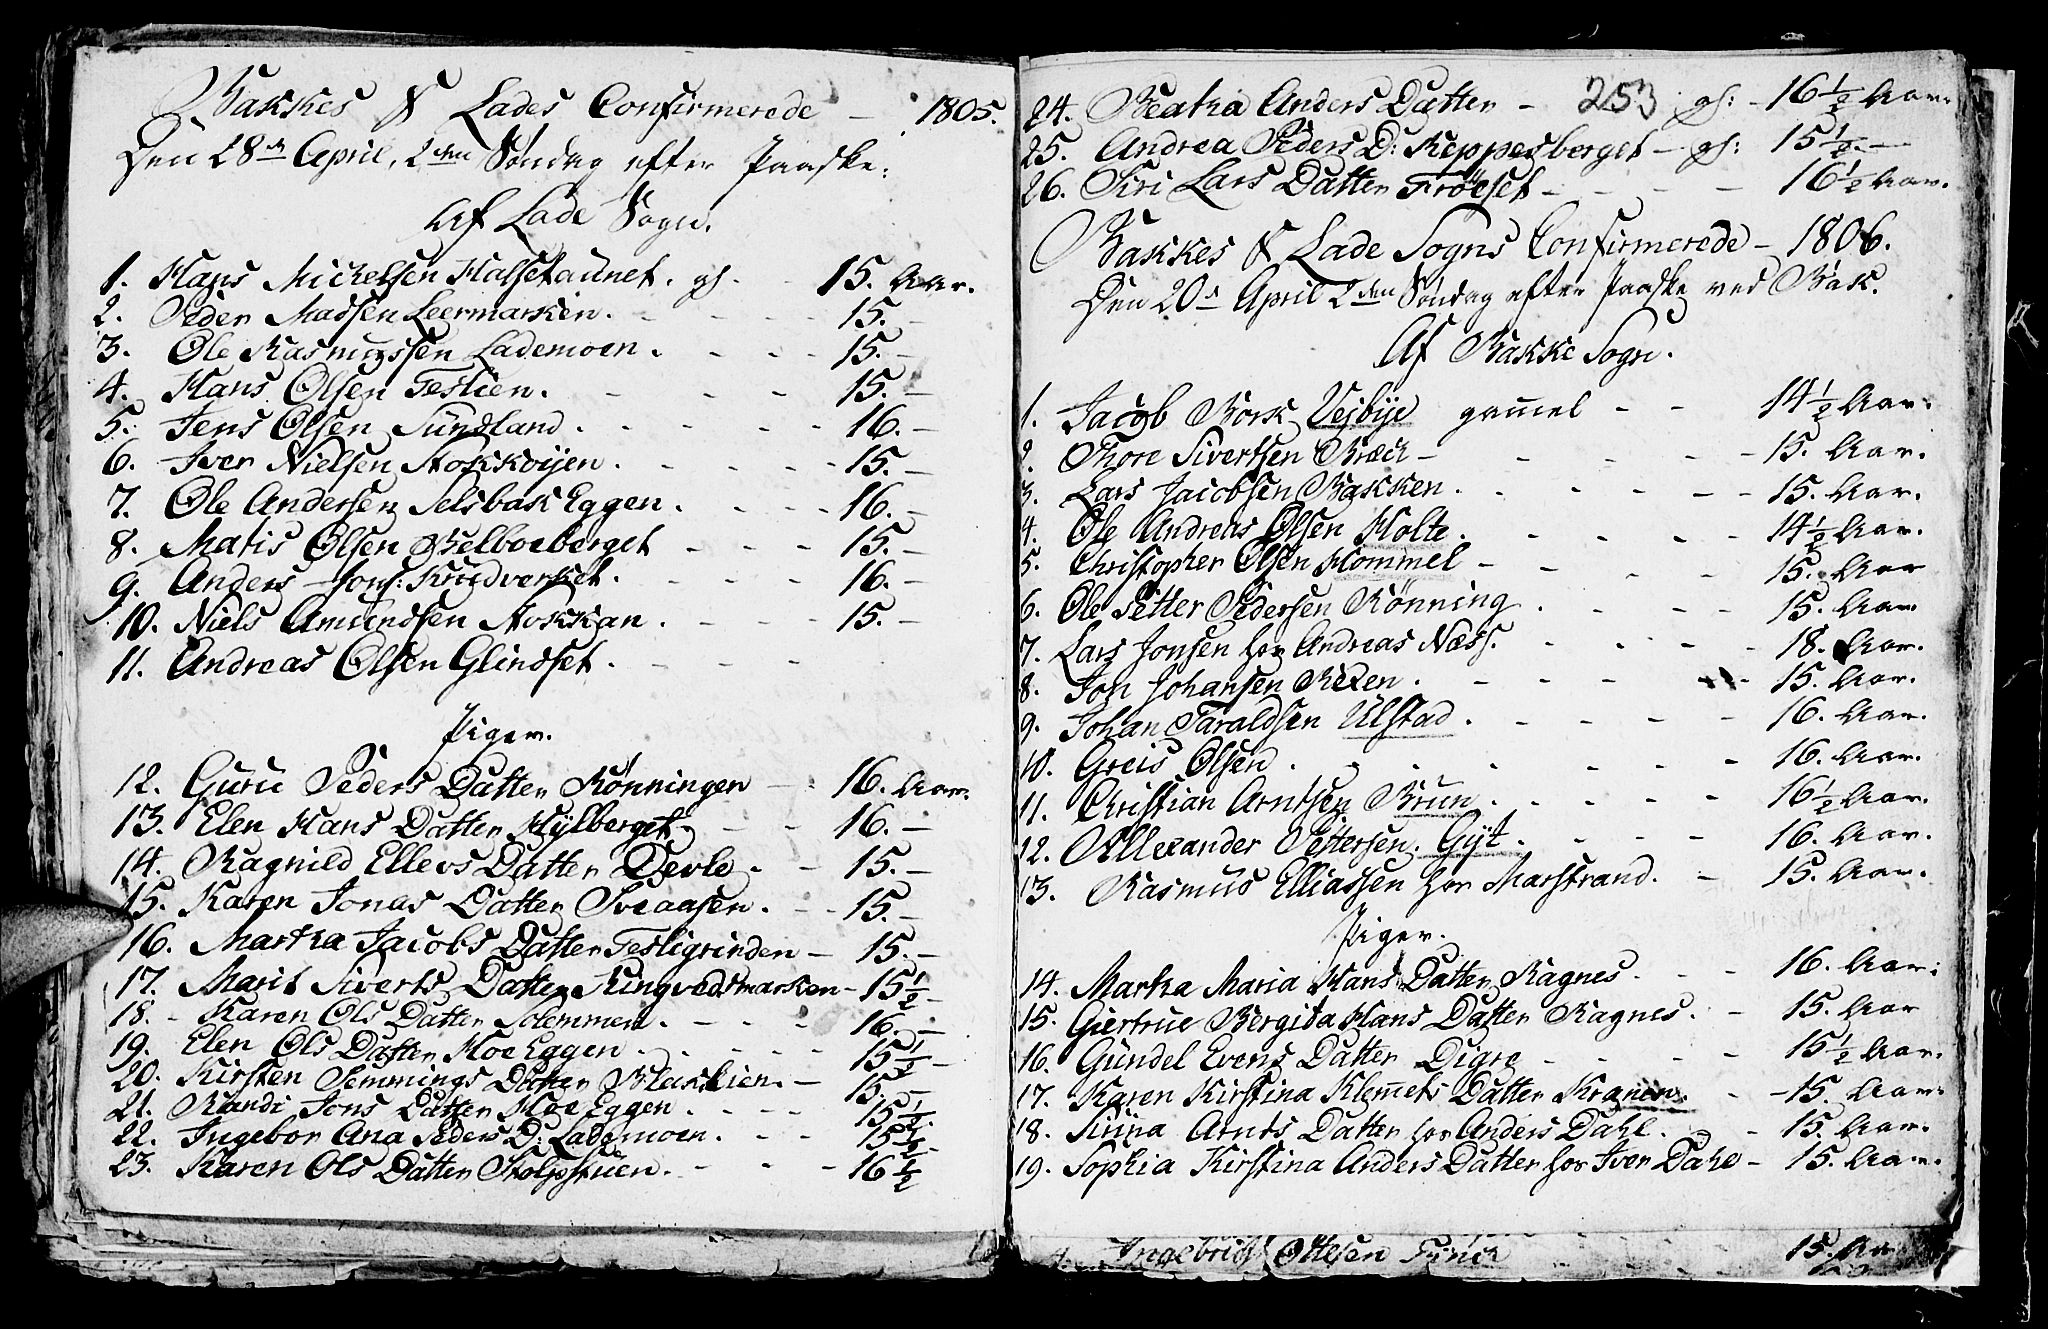 Bakkes & Lades Confirmerede — 1805.
Den 28de April, 2den Søndag efter Paaske.
Af Lade Sogn.
1. Hans Mickelsen Halsetaunet. gl. - 15. Aar.
2. Peder Madsen Leermarken. - - - 15. —
3. Ole Rasmussen Lademoen. - - - 15. —
4. Hans Olsen Teslien. - - - 15. —
5. Jens Olsen Sundland. - - - 16. —
6. Iver Nielsen Stokkvijen. - - - 15. —
7. Ole Andersen Selsbak Eggen. - - - 16. —
8. Matis Olsen Belboeberget - - - 15. —
9. Anders Jons: Krudverket. - - - 16. —
10. Niels Amundsen Stokkan. - - - 15. —
11. Andreas Olsen Glindset. - - -
Piger.
12. Guru Peders Datter Rønningen — 16. Aar.
13. Elen Hans Datter Hylberget - - 16. —
14. Ragnild Ellevs Datter Devle. - - 15. —
15. Karen Jonas Datter Sveaasen. - - 15. —
16. Martha Jacobs Datter Tesligrinden — 15. —
17. Marit Siverts Datter Ringvedsmarken — 15 1/2 —
18. - Karen Ols Datter Solemmen. - - - 16. —
19. Elen Ols Datter Moe Eggen. - - - 15 1/2 —
20. Kirsten Semmings Datter Blaklien. — 15. —
21. Randi Jons Datter Moe Eggen. - - - 15 1/2.
22. Ingebor Ana Peders D: Lademoen. - - 15 1/2.
23. Karen Ols Datter Stolpstuen. - - - 16 1/2
253
24. Beatha Anders Datter - gl: - 16 1/2 Aar.
25. Andrea Peders D: Reppesberget - gl: 15 1/2. —
26. Siri Lars Datter Frøeset - - - - 16 1/2 Aar.
Bakkes & Lade Sogns Confirmerede - 1806.
Den 20de April 2den Søndag efter Paaske ved Bak.
Af Bakke Sogn.
1. Jacob Bork Vejbye gammel - - 14 1/2 Aar.
2. Thore Sivertsen Bræck - - - - 15. Aar.
3. Lars Jacobsen Bakken. - - - - 15. Aar.
4. Ole Andreas Olsen Holte. - - - - 14 1/2 Aar.
5. Christopher Olsen Hommel - - - 15. Aar
6. Ole Petter Pedersen Rønning. - - - 15. Aar.
7. Lars Jonsen hos Andreas Næss. - - - 18. Aar.
8. Jon Johansen Reken. - - - - 15. Aar.
9. Johan Taraldsen Ulstad. - - - - 16. Aar.
10. Greis Olsen. - - - - 16. Aar.
11. Christian Arntsen Brun. - - - - 16 1/2 Aar.
12. Allexander Pettersen. Gyt. - - - 16. Aar.
13. Rasmus Elliassen hos Marstrand. - 15. Aar.
Piger.
14. Martha Maria Hans Datter Ragnes. - - 16. Aar.
15. Giertrue Bergida Hans Datter Ragnes. - 15. Aar
16. Gundel Evens Datter Digre - - - - 15 1/2 Aar.
17. Karen Kirstina Klemmets Datter Kranen. - - 15. Aar.
18. Sirina Arnts Datter hos Anders Dahl. - 15. Aar.
19. Sophia Kirstina Anders Datter hos Iver Dahl - 15. Aar.
Ingebrigt Ottesen 15. Aar